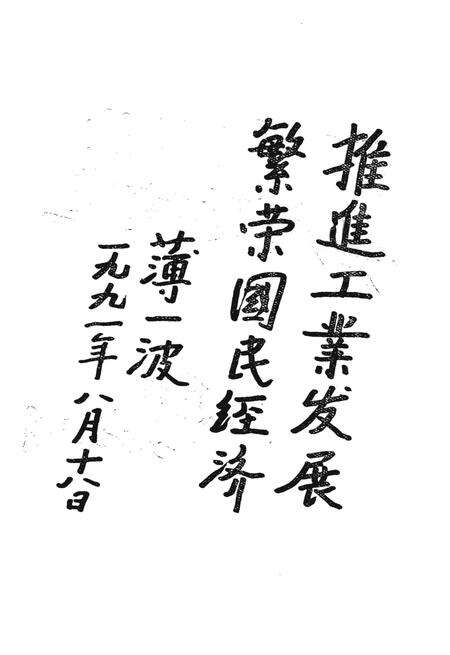 推進工業发展
繁荣國民経济
薄一波
一九九一年八月十八日